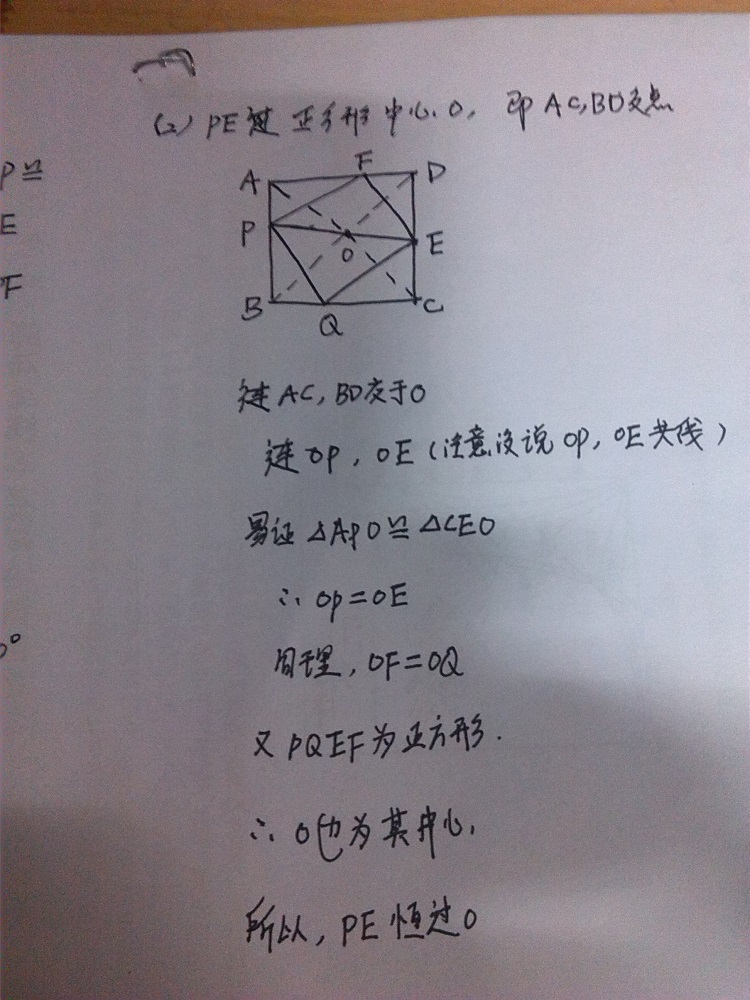 (2) PE过正方形中心O, 即AC,BD交点
P≌
E
F
A
F
D
P
O
E
B
Q
C
连AC, BD交于O
连OP, OE (注意没说OP, OE共线)
易证 △APO≌△CEO
∴ OP=OE
同理, OF=OQ
又PQEF为正方形.
∴ O也为其中心,
所以, PE恒过O